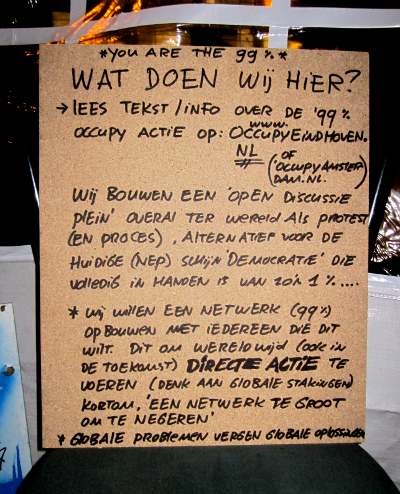 *YOU ARE THE 99%*
WAT DOEN WIJ HIER?
→ LEES TEKST/INFO OVER DE '99%
OCCUPY ACTIE OP: www.OCCUPYEINDHOVEN.
NL OF
('OCCUPYAMSTER
DAM.NL.)
WIJ BOUWEN EEN 'OPEN DISCUSSIE
PLEIN' OVERAL TER WERELD ALS PROTEST
(EN PROCES), ALTERNATIEF VOOR DE
HUIDIGE (NEP) SCHIJN 'DEMOCRATIE' DIE
VOLLEDIG IN HANDEN IS VAN ZO'N 1%....
* WIJ WILLEN EEN NETWERK (99%)
OPBOUWEN MET IEDEREEN DIE DIT
WILT. DIT OM WERELDWIJD (OOK IN
DE TOEKOMST) DIRECTE ACTIE TE
VOEREN (DENK AAN GLOBALE STAKINGEN)
KORTOM, 'EEN NETWERK TE GROOT
OM TE NEGEREN'
* GLOBALE PROBLEMEN VERGEN GLOBALE OPLOSSINGEN